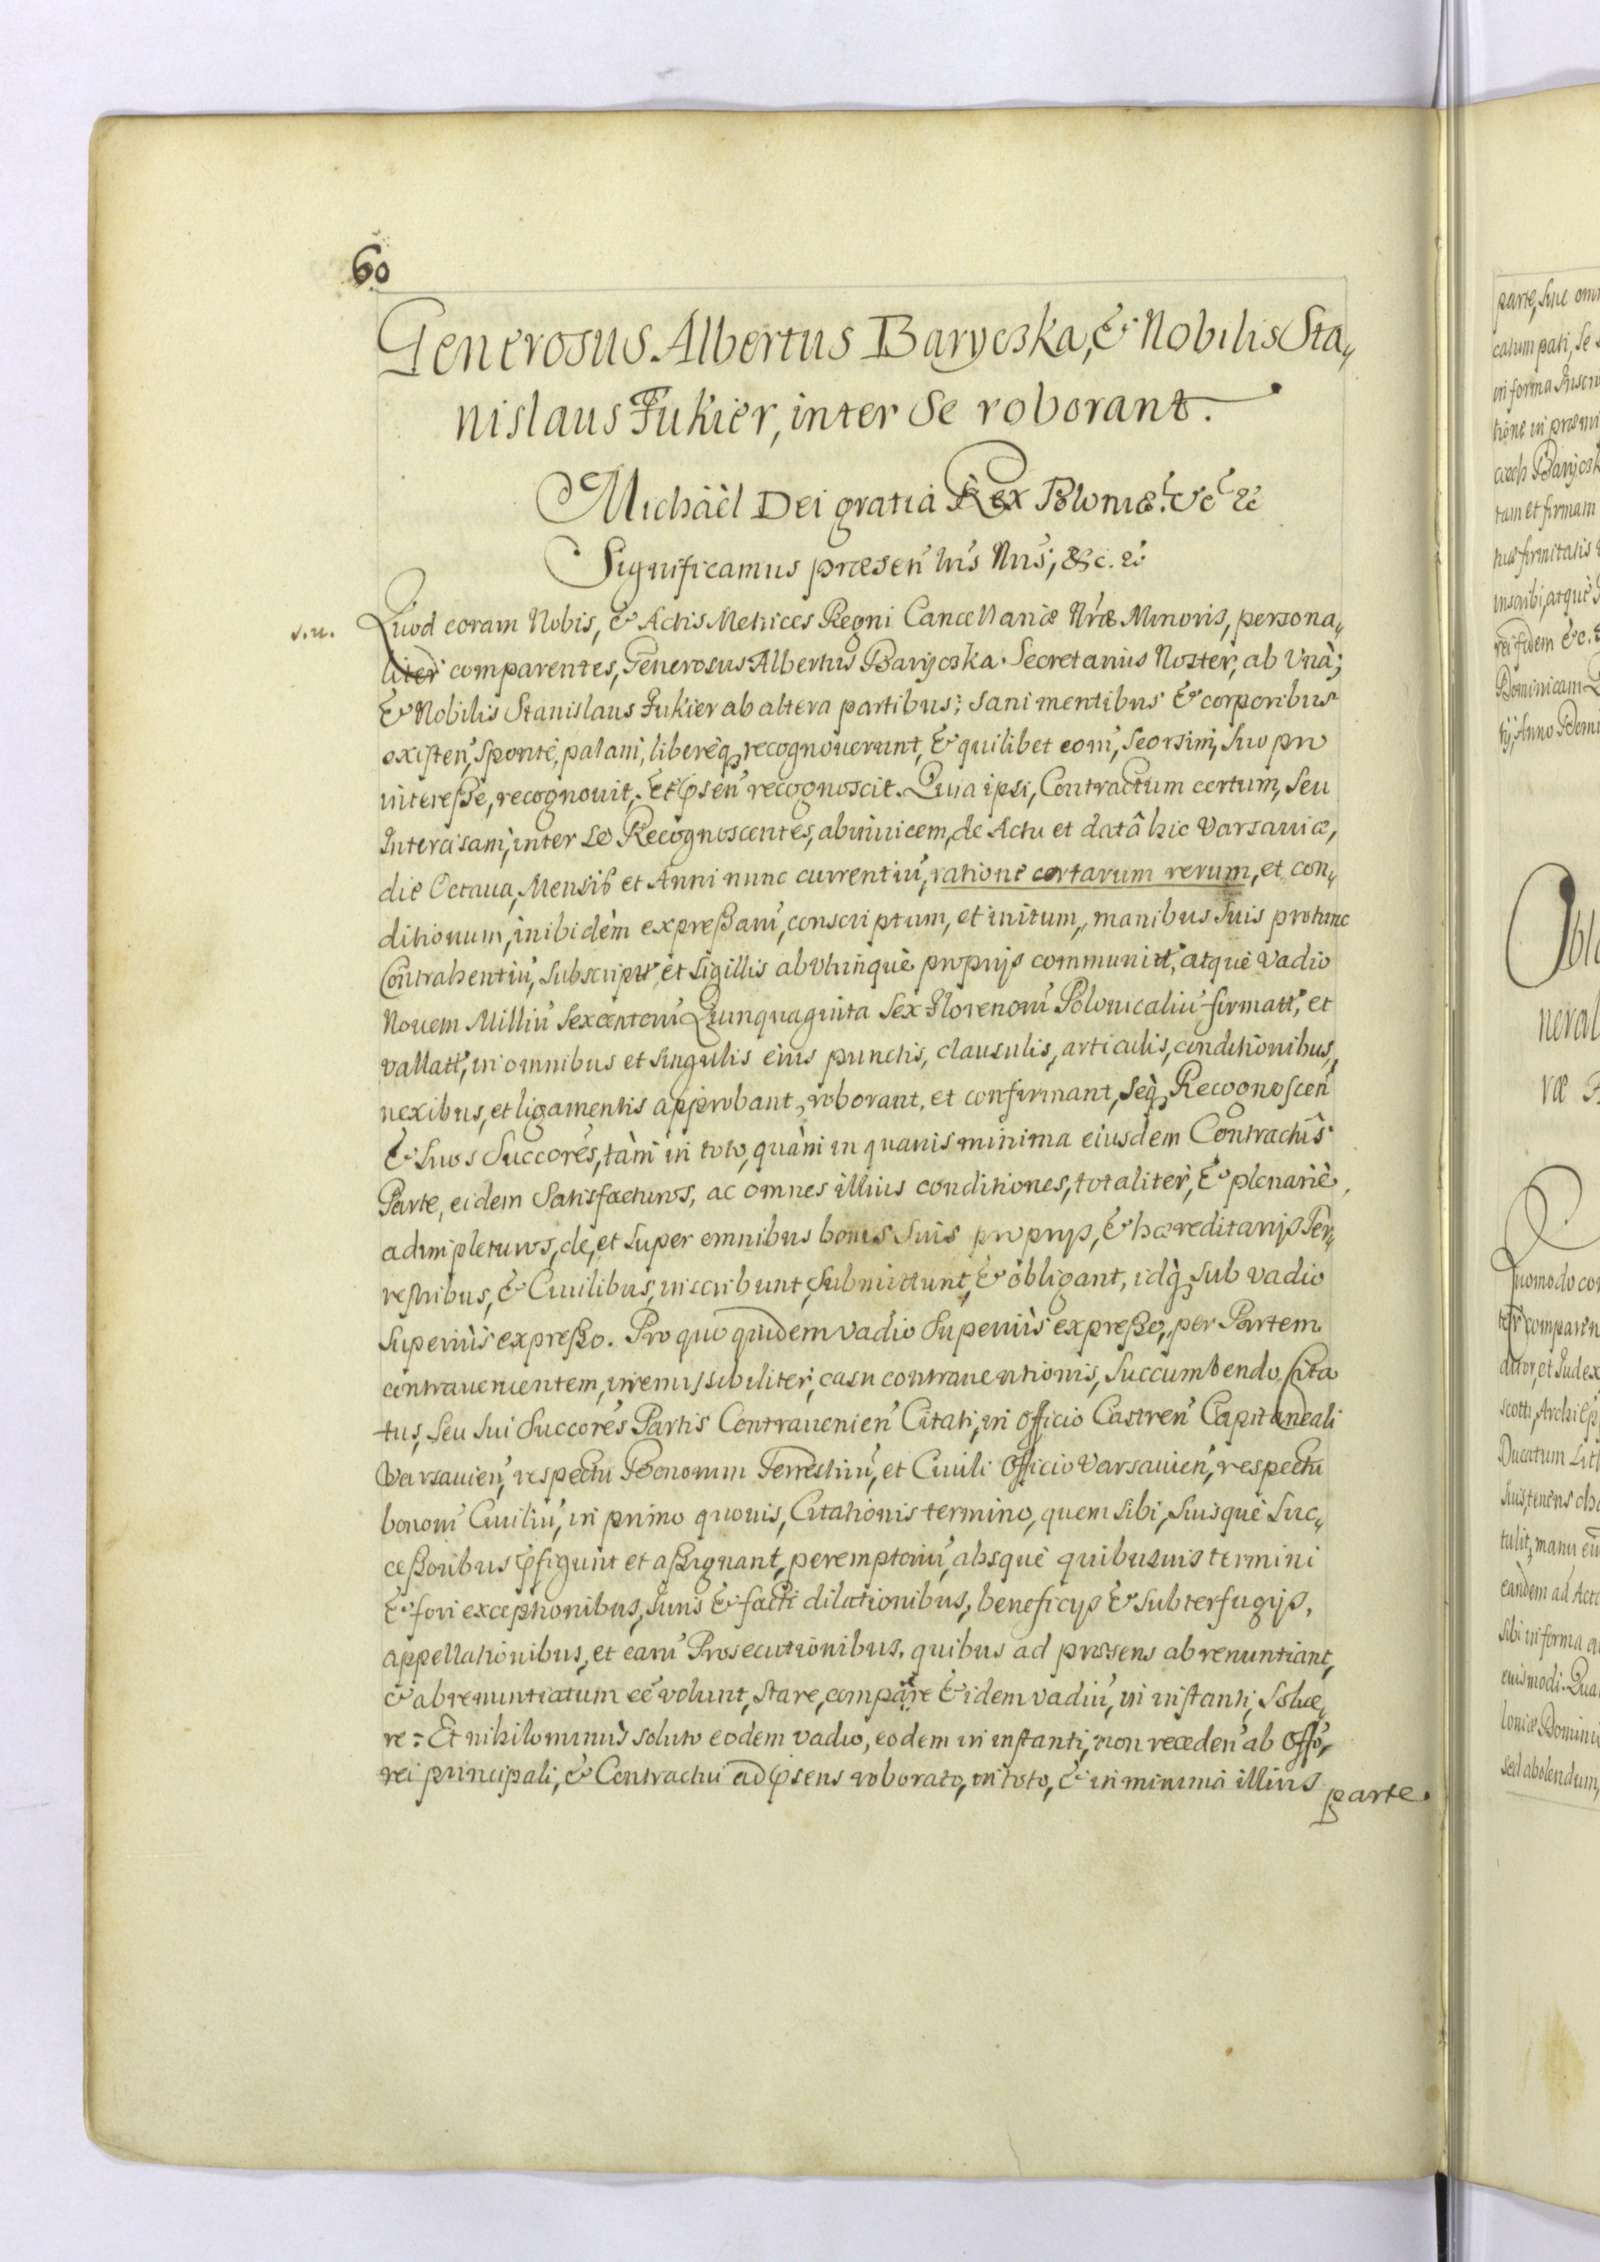 60
Generosus Albertus Barycska, & Nobilis Sta„
nislaus Fukier, inter se roborant.
Michäel Dei gratiâ Rex Poloniæ. &c &c
Significamus præsen̄ lris Nris, &c. &
s.n.
Quod coram Nobis, & Actis Metrices Regni Cancellariæ Nræ Minoris, persona„
liter comparentes, Generosus Albertus Barycska Secretarius Noster, ab Vnà;
& Nobilis Stanislaus Fukier ab altera partibus; sani mentibus & corporibus
existen̄, sponte, palam, libereq̨ recognouerunt, & quilibet eorū, seorsim, suo pro
interesse, recognouit, Et p̄sen̄ recognoscit. Quia ipsi, Contractum certum, seu
Intercisam, inter se Recognoscentes, abinuicem, de Actu et datâ hic Varsauiæ,
die Octaua, Mensis et Anni nunc currentiū, ratione certarum rerum, et con„
ditionum, inibidem expressarū, conscriptum, et initum, manibus suis protunc
Contrahentiū, subscript̄, et sigillis abvtrinquè proprijs communitt̄, atquè vadio
Nouem Milliū Sexcentorū Quinquaginta Sex Florenorū Polonicaliū firmatt̄, et
vallatt̄, in omnibus et singulis eius punctis, clausulis, articulis, conditionibus,
nexibus, et ligamentis approbant, roborant, et confirmant, seq̨ Recognoscen̄
& suos Succores, tàm in toto, quàm in quauis minima eiusdem Contractûs
Parte, eidem Satisfacturos, ac omnes illius conditiones, totaliter, & plenariè
adimpleturos, de, et super omnibus bonis suis proprijs, & hæreditarijs Ter„
restribus, & Ciuilibus, inscribunt, submittunt, & obligant, idq̨ sub vadio
superiùs expresso. Pro quo quidem vadio Superiùs expresso, per Partem
contrauenientem, irremissibiliter, casu contrauentionis, succumbendo, Cita
tus, seu sui Succores Partis Contrauenien̄ Citati, in Officio Castren̄ Capitaneali
Varsauien̄, respectu Bonorum Terrestriū, et Ciuili Officio Varsauien̄, respectu
bonorū Ciuiliū, in primo quouis, Citationis termino, quem sibi, suisquè suc„
cessoribus p̄figunt et assignant, peremptoriū, absquè quibusuis termini
& fori exceptionibus, iuris & facti dilationibus, beneficijs & subterfugijs,
appellationibus, et earū Prosecutionibus, quibus ad præsens abrenuntiant,
& abrenuntiatum eē volunt, stare, compare & idem vadiū, in instanti, solue„
re: Et nihilominùs soluto eodem vadio, eodem in instanti, non receden̄ ab Offo,
rei principali, & Contractui ad p̄sens roborato, in toto, & in minima illius
parte.